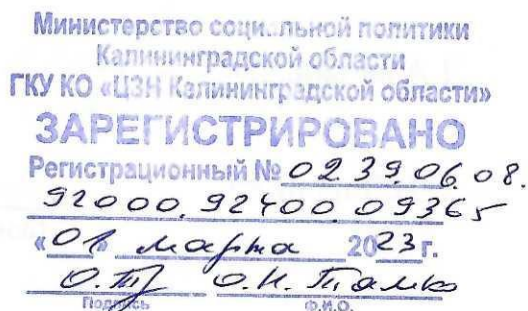 Министерство социальной политики
Калининградской области
ГКУ КО «ЦЗН Калининградской области»
ЗАРЕГИСТРИРОВАНО
Регистрационный № 02.39.06.08.
92000.92400.09365
«01» марта 2023 г.
О.Н.
Подпись Ф.И.О.